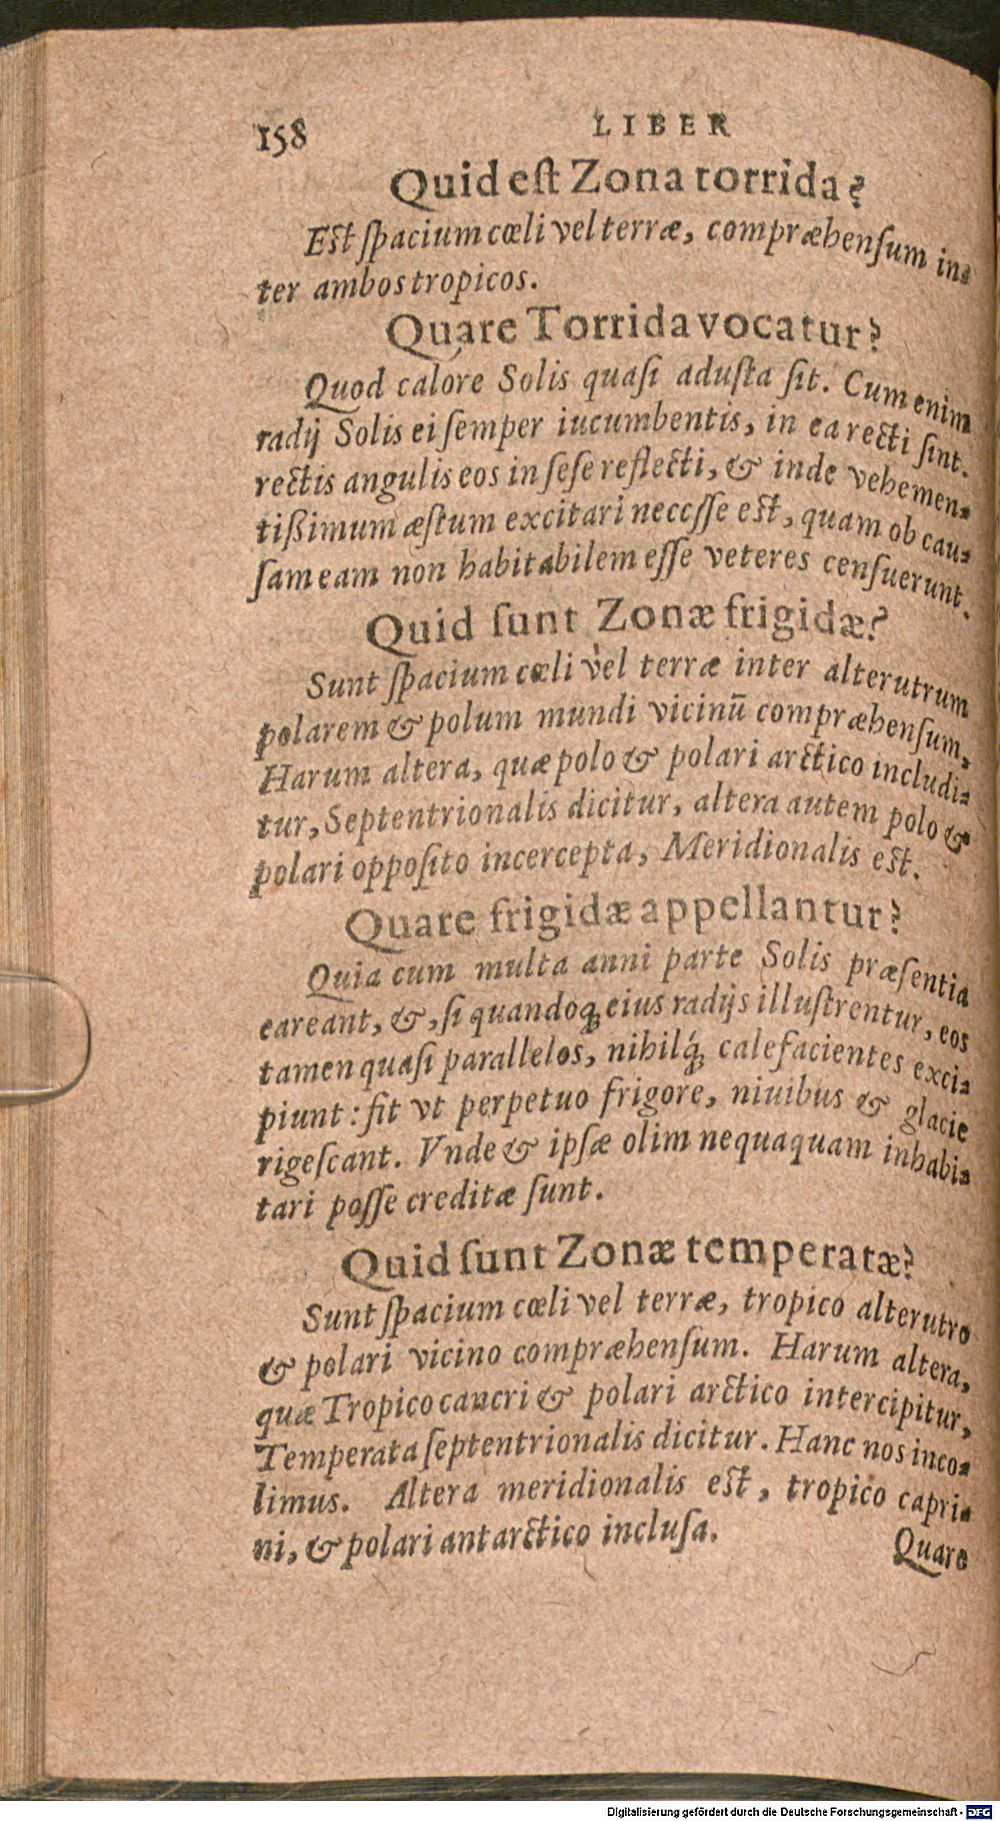 158 LIBER
Quid eſt Zona torrida?
Eſt ſpacium cœli vel terræ, compræhenſum in⸗
ter ambos tropicos.
Quare Torrida vocatur?
Quod calore Solis quaſi aduſta ſit. Cum enim
radij Solis ei ſemper iucumbentis, in ea recti ſint.
rectis angulis eos in ſeſe reflecti, & inde vehemen⸗
tißimum æſtum excitari neceſſe eſt, quam ob cau⸗
ſam eam non habitabilem eſſe veteres cenſuerunt.
Quid ſunt Zonæ frigidæ?
Sunt ſpacium cœli vel terræ inter alterutrum
polarem & polum mundi vicinū compræhenſum,
Harum altera, quæ polo & polari arctico includi⸗
tur, Septentrionalis dicitur, altera autem polo &
polari oppoſito incercepta, Meridionalis eſt.
Quare frigidæ appellantur?
Quia cum multa anni parte Solis præſentia
careant, &, ſi quandoq; eius radijs illuſtrentur, eos
tamen quaſi parallelos, nihilq́; calefacientes exci⸗
piunt: fit vt perpetuo frigore, niuibus & glacie
rigeſcant. Vnde & ipſæ olim nequaquam inhabi⸗
tari poſſe creditæ ſunt.
Quid ſunt Zonæ temperatæ?
Sunt ſpacium cœli vel terræ, tropico alterutro
& polari vicino compræhenſum. Harum altera,
quæ Tropico cancri & polari arctico intercipitur,
Temperata ſeptentrionalis dicitur. Hanc nos inco⸗
limus. Altera meridionalis eſt, tropico capri⸗
ni, & polari antarctico incluſa.
Quare
Digitalisierung gefördert durch die Deutsche Forschungsgemeinschaft - DFG